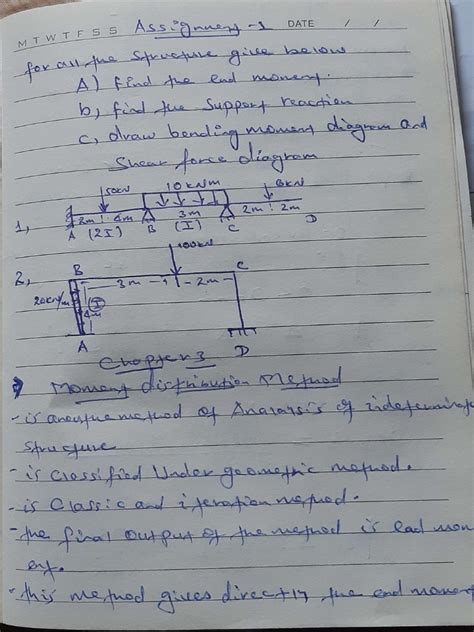 M T W T F S S Assignment - 1 DATE / /
for all the structure give below
A) find the end moment.
b, find the support reaction
c, draw bending moment diagram and
Shear force diagram
50kN 10kNm 8kN
1,
2m 4m 3m 2m 2m
A (2I) B (I) C D
100kN
2, B C
3m 2m
20kN/m (I)
4m
A D
Chapter 3
Moment distribution Method
- is method of Analaysis of indeterminate
structure
- is classified Under geometric method.
- is classic and iteration method.
- the final output of the method is
ent.
- this method gives directly the end moment